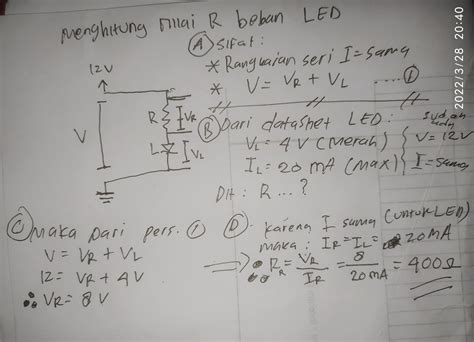 menghitung nilai R beban LED
(A) Sifat :
* Rangkaian seri I = sama
* V = VR + VL ..... (1)
12V
V
R
VR
L
VL
(B) Dari datashet LED :
VL = 4V (merah)
IL = 20 mA (max)
Dit : R ... ?
sudah
V = 12V
I = sama
(C) maka Dari pers. (1)
V = VR + VL
12 = VR + 4V
∴ VR = 8V
(D) karena I sama (untuk LED)
maka : IR = IL = 20MA
RR = VR/IR = 8/20MA = 400Ω
2022/3/28 20:40